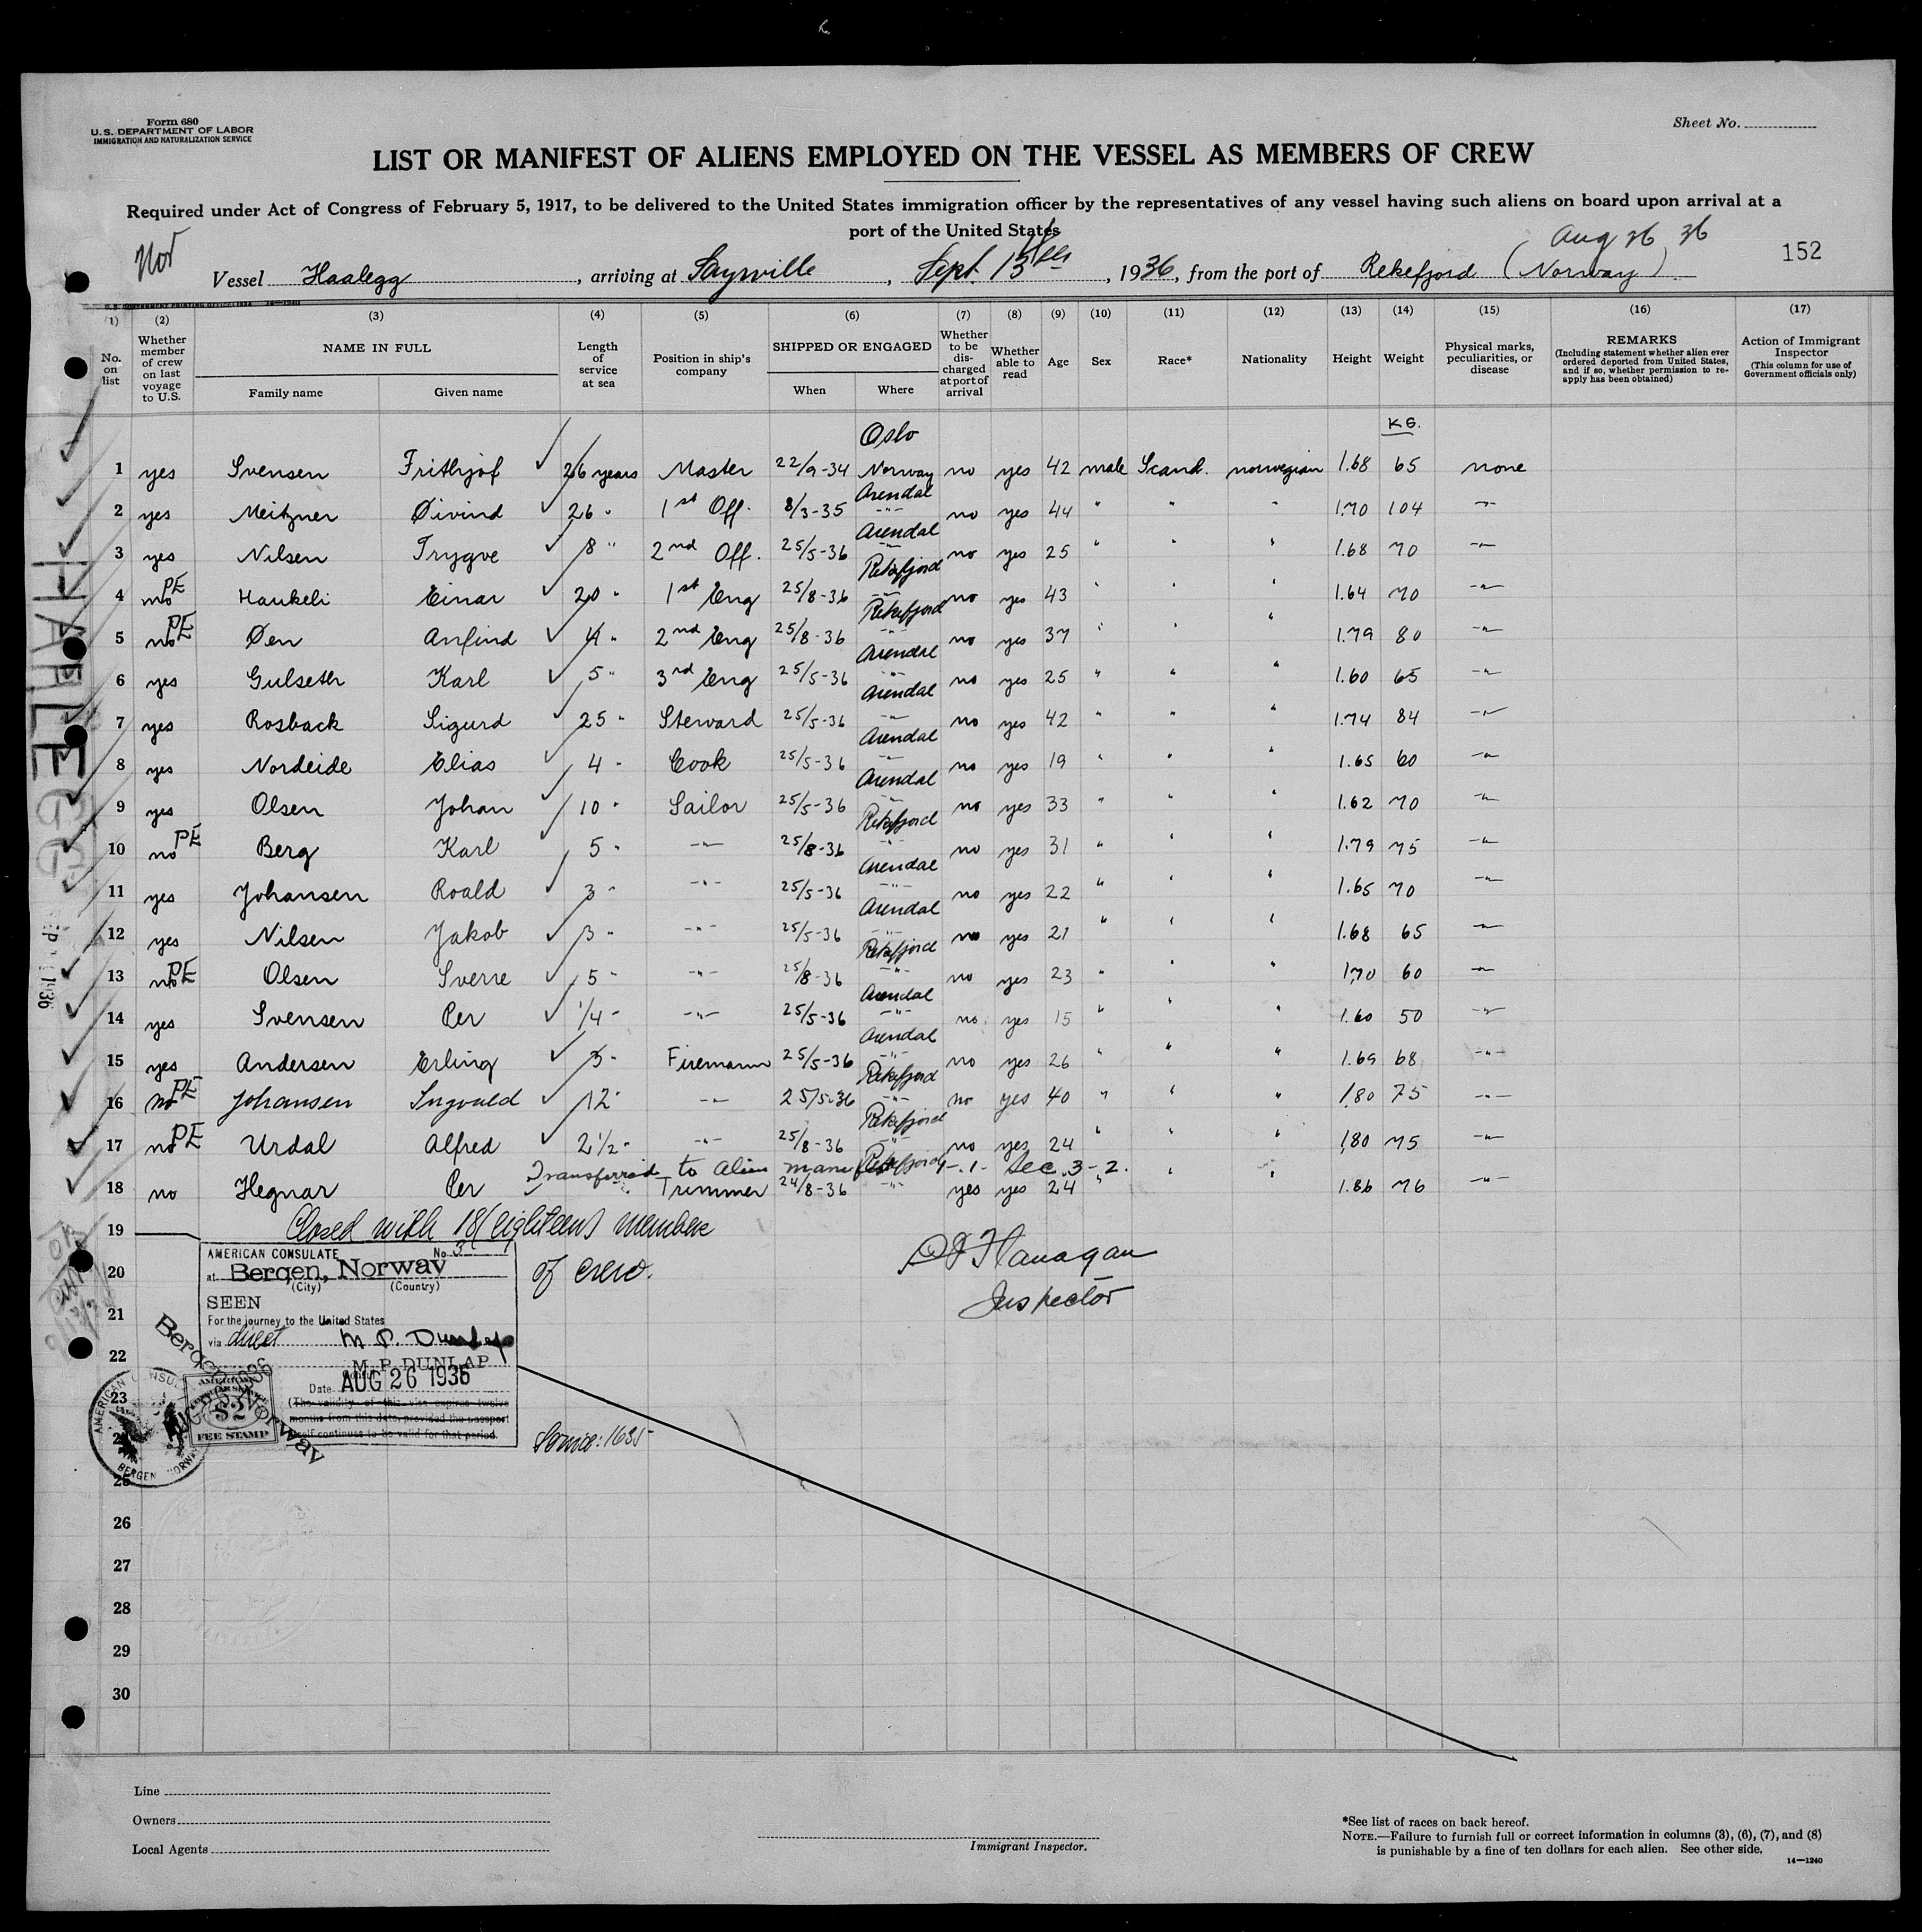 Form 680
U.S. DEPARTMENT OF LABOR
IMMIGRATION AND NATURALIZATION SERVICE
Sheet No.
LIST OR MANIFEST OF ALIENS EMPLOYED ON THE VESSEL AS MEMBERS OF CREW
Required under Act of Congress of February 5, 1917, to be delivered to the United States immigration officer by the representatives of any vessel having such aliens on board upon arrival at a
port of the United States
Nor
Aug 26 36
152
Vessel Haalegg, arriving at Sayrville, Sept. 13th, 1936, from the port of Rekefjord (Norway)
(1) (2) (3) (4) (5) (6) (7) (8) (9) (10) (11) (12) (13) (14) (15) (16) (17)
No. on list
Whether member of crew on last voyage to U.S.
NAME IN FULL
Family name
Given name
Length of service at sea
Position in ship's company
SHIPPED OR ENGAGED
When
Where
Whether to be discharged at port of arrival
Whether able to read
Age
Sex
Race*
Nationality
Height
Weight
Physical marks, peculiarities, or disease
REMARKS
(Including statement whether alien ever ordered deported from United States, and if so, whether permission to reapply has been obtained)
Action of Immigrant Inspector
(This column for use of Government officials only)
KG.
1 yes Svensen Frithjof 26 years Master 22/9-34 Oslo Norway no yes 42 male Scand. norwegian 1.68 65 none
2 yes Meitzner Øivind 26 " 1st Off. 8/3-35 Arendal -"- no yes 44 " " " 1.70 104 -"-
3 yes Nilsen Trygve 8 " 2nd Off. 25/5-36 Arendal -"- no yes 25 " " " 1.68 70 -"-
4 no PE Haukeli Einar 20 " 1st Eng 25/8-36 Rekefjord -"- no yes 43 " " " 1.64 70 -"-
5 no PE Øen Anfind 4 " 2nd Eng 25/8-36 Rekefjord -"- no yes 37 " " " 1.79 80 -"-
6 yes Gulseth Karl 5 " 3rd Eng 25/5-36 Arendal -"- no yes 25 " " " 1.60 65 -"-
7 yes Rosback Sigurd 25 " Steward 25/5-36 Arendal -"- no yes 42 " " " 1.74 84 -"-
8 yes Nordeide Elias 4 " Cook 25/5-36 Arendal -"- no yes 19 " " " 1.65 60 -"-
9 yes Olsen Johan 10 " Sailor 25/5-36 Arendal -"- no yes 33 " " " 1.62 70 -"-
10 no PE Berg Karl 5 " -"- 25/8-36 Rekefjord -"- no yes 31 " " " 1.79 75 -"-
11 yes Johansen Roald 3 " -"- 25/5-36 Arendal -"- no yes 22 " " " 1.65 70 -"-
12 yes Nilsen Jakob 3 " -"- 25/5-36 Arendal -"- no yes 21 " " " 1.68 65 -"-
13 no PE Olsen Sverre 5 " -"- 25/8-36 Rekefjord -"- no yes 23 " " " 1.70 60 -"-
14 yes Svensen Per 1/4 " -"- 25/5-36 Arendal -"- no yes 15 " " " 1.60 50 -"-
15 yes Andersen Erling 3 " Firemann 25/5-36 Arendal -"- no yes 26 " " " 1.69 68 -"-
16 no PE Johansen Ingvald 12 " -"- 25/5-36 Rekefjord -"- no yes 40 " " " 1.80 75 -"-
17 no PE Urdal Alfred 2 1/2 " -"- 25/8-36 Rekefjord -"- no yes 24 " " " 1.80 75 -"-
Transferred to Alien manifest 1-.1- Sec. 3-2.
18 no Hegnar Per Trimmer 24/8-36 Rekefjord -"- yes yes 24 " " " 1.86 76 -"-
19 Closed with 18 (eighteen) members
of crew.
Flanagan
Inspector
20
21
22
23
25
26
27
28
29
30
AMERICAN CONSULATE No 3
at Bergen, Norway
(City) (Country)
SEEN
For the journey to the United States
via direct M. P. Dunlap
M. P. DUNLAP
Date AUG 26 1936
(The validity of this visa expires twelve
months from this date, provided the passport
itself continues to be valid for that period.
Service: 1685
AMERICAN CONSULATE
BERGEN NORWAY
$2
FEE STAMP
Bergen, Norway
HAALEGG
1936
Line
Owners
Local Agents
Immigrant Inspector.
*See list of races on back hereof.
NOTE.—Failure to furnish full or correct information in columns (3), (6), (7), and (8)
is punishable by a fine of ten dollars for each alien. See other side.
14—1240